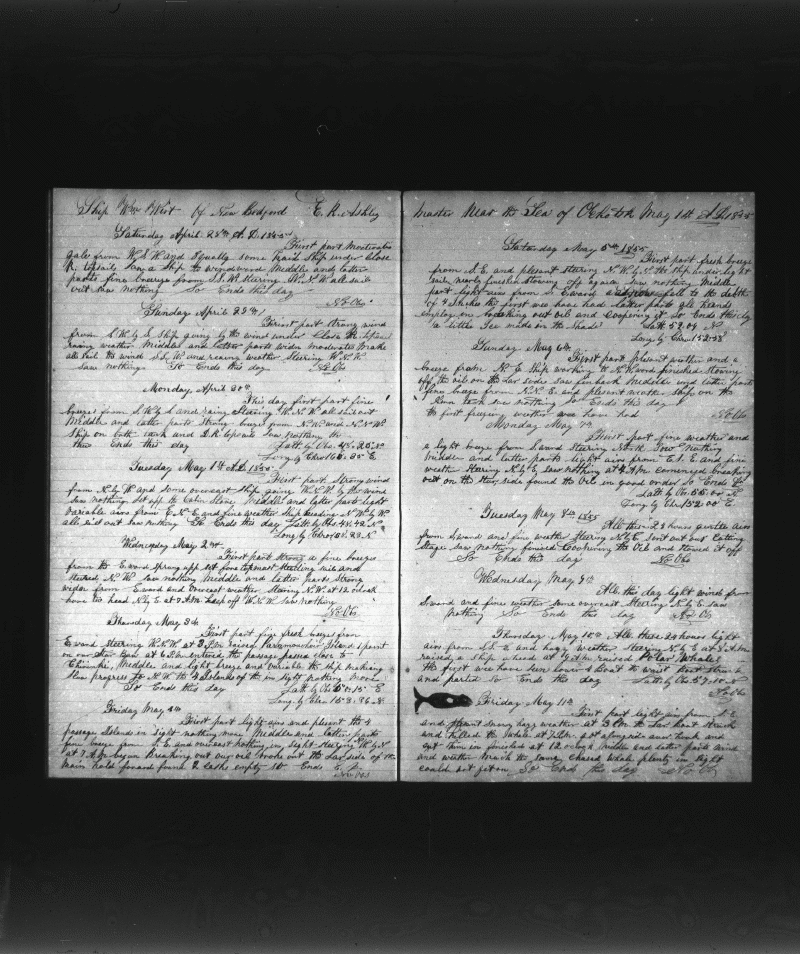 Ship Wm Wirt of New Bedford E. R. Ashley
Saturday April 28th A.D. 1855
First part moderate
gale from W.S.W and squally some rain ship under close
R. topsails saw a ship to windward Middle and later
parts fine breeze from steering N.N.W all sail
out saw nothing So Ends this day
No Obs
Sunday April 29th
First part strong wind
from S.W by S ship going by the wind under close R. topsails
raining weather Middle and latter parts winds moderated make
all sail the winds and raining weather Steering W.N.W
saw nothing So Ends this day No Obs
Monday April 30th
This day first part fine
breezes from S.W by S and rainy Stearing W.N.W all sail out
Middle and latter parts Strong breezes from N.W and N.N.W
Ship on both tacks and D.R topsails saw nothing So
this Ends this day Latt by Obs 48.25 N
Long by Chro 161.35 E
Tuesday May 1st A.D. 1855
First part Strong wind
from N by W and some overcast ship going W.N.W by the wind
saw nothing Middle and latter parts light
variable airs from E.N.E and fine weather ship heading N.W by W
all sail out saw nothing So Ends this day Latt by Obs 48.42 N
Long by Chro
Wednesday May 2nd
First part strong a fine breeze
from the E ward sprung up set fore topmast sterling sail and
steered N.W. saw nothing Middle and latter parts Strong
from E ward and overcast weather Stearing N.W at 12 oclock
hove to head N by E at 7 AM kept off W.N.W saw nothing
No Obs
Thursday May 3d
First part fine fresh breeze from
E ward steering W.N.W. at 3 P.m raised Island 1 point
on our at 6 P.m entered the passage passed close to
Middle and light breeze and variable the ship making
slow progress to N.W the 4 Islands of the in sight nothing more
So Ends this day Latt by Obs 50.15 E
Long by Chro
Friday May 4th
First part light airs and plesent the 4
passage Islands in sight nothing more Middle and latter parts
fine breeze from S.E and overcast nothing in sight steering N by W
at 7 A.m begun Breaking out our oil broke out the Lar side of the
main hold forward found 2 casks empty So Ends
No Obs
master Near the Sea of Ochotsk May 1st A.D 1855
Saturday May 5th 1855
First part fresh breeze
from S.E and plesent steering N.W by N the ship under light
sail nearly finished stowing off again saw nothing Middle
part light airs from S E ward and snow fell to the debth
of 4 Inches the first we have had Latter parts all Hands
employ on breaking out oil and coopering it So Ends this day
a little Ice made on the heads Latt 52.09 N
Long by Chro 152.58
Sunday May 6th
First part plesent weather and a
breeze from N.E ship working to N.W ard finished stowing
off the oil on the Lar side saw finback Middle and latter parts
fine breeze from N.N.E and plesent weather Ship on the
tack saw nothing So Ends this day
the first freezing weather we have had No Obs
Monday May 7th
First part fine weather and
a light breeze from S ward steering North Saw nothing
middle and latter parts light airs from E.S.E and fine
weather Stearing N by E saw nothing at 7 A.m comenced breaking
out on the star side found the Oil in good order So Ends
Latt by Obs 55.00 N
Long by Chro 152.00 E
Tuesday May 8th 1855
All these 23 hours gentle airs
from S ward and fine weather steering N by E Sent out our Cutting
Stage saw nothing finised Coopering the Oil and stowed it off
So Ends this day No Obs
Wednesday May 9th
All this day light winds from
S ward and fine weather some overcast Steering N by E saw
nothing So Ends this day No Obs
Thursday May 10th All these 24 hours light
airs from S.E and hazy weather steering N by E at 8 A.m
raised a ship ahead at 9 A.m raised Polar Whales
the first we have seen lowerd 4 boats the waist boat struck
and parted So Ends this day Latt by Obs 57.10 N
No Obs
Friday May 11th
First part light airs from S.E
and plesent smoky hazy weather at 3 P.m the Lar boat struck
and killed the whale at 7 P.m got alongside and hook and
cut them in finished at 12 oclock middle and latter parts wind
and weather much the same chased whale plenty in sight
could not get on So Ends this day No Obs